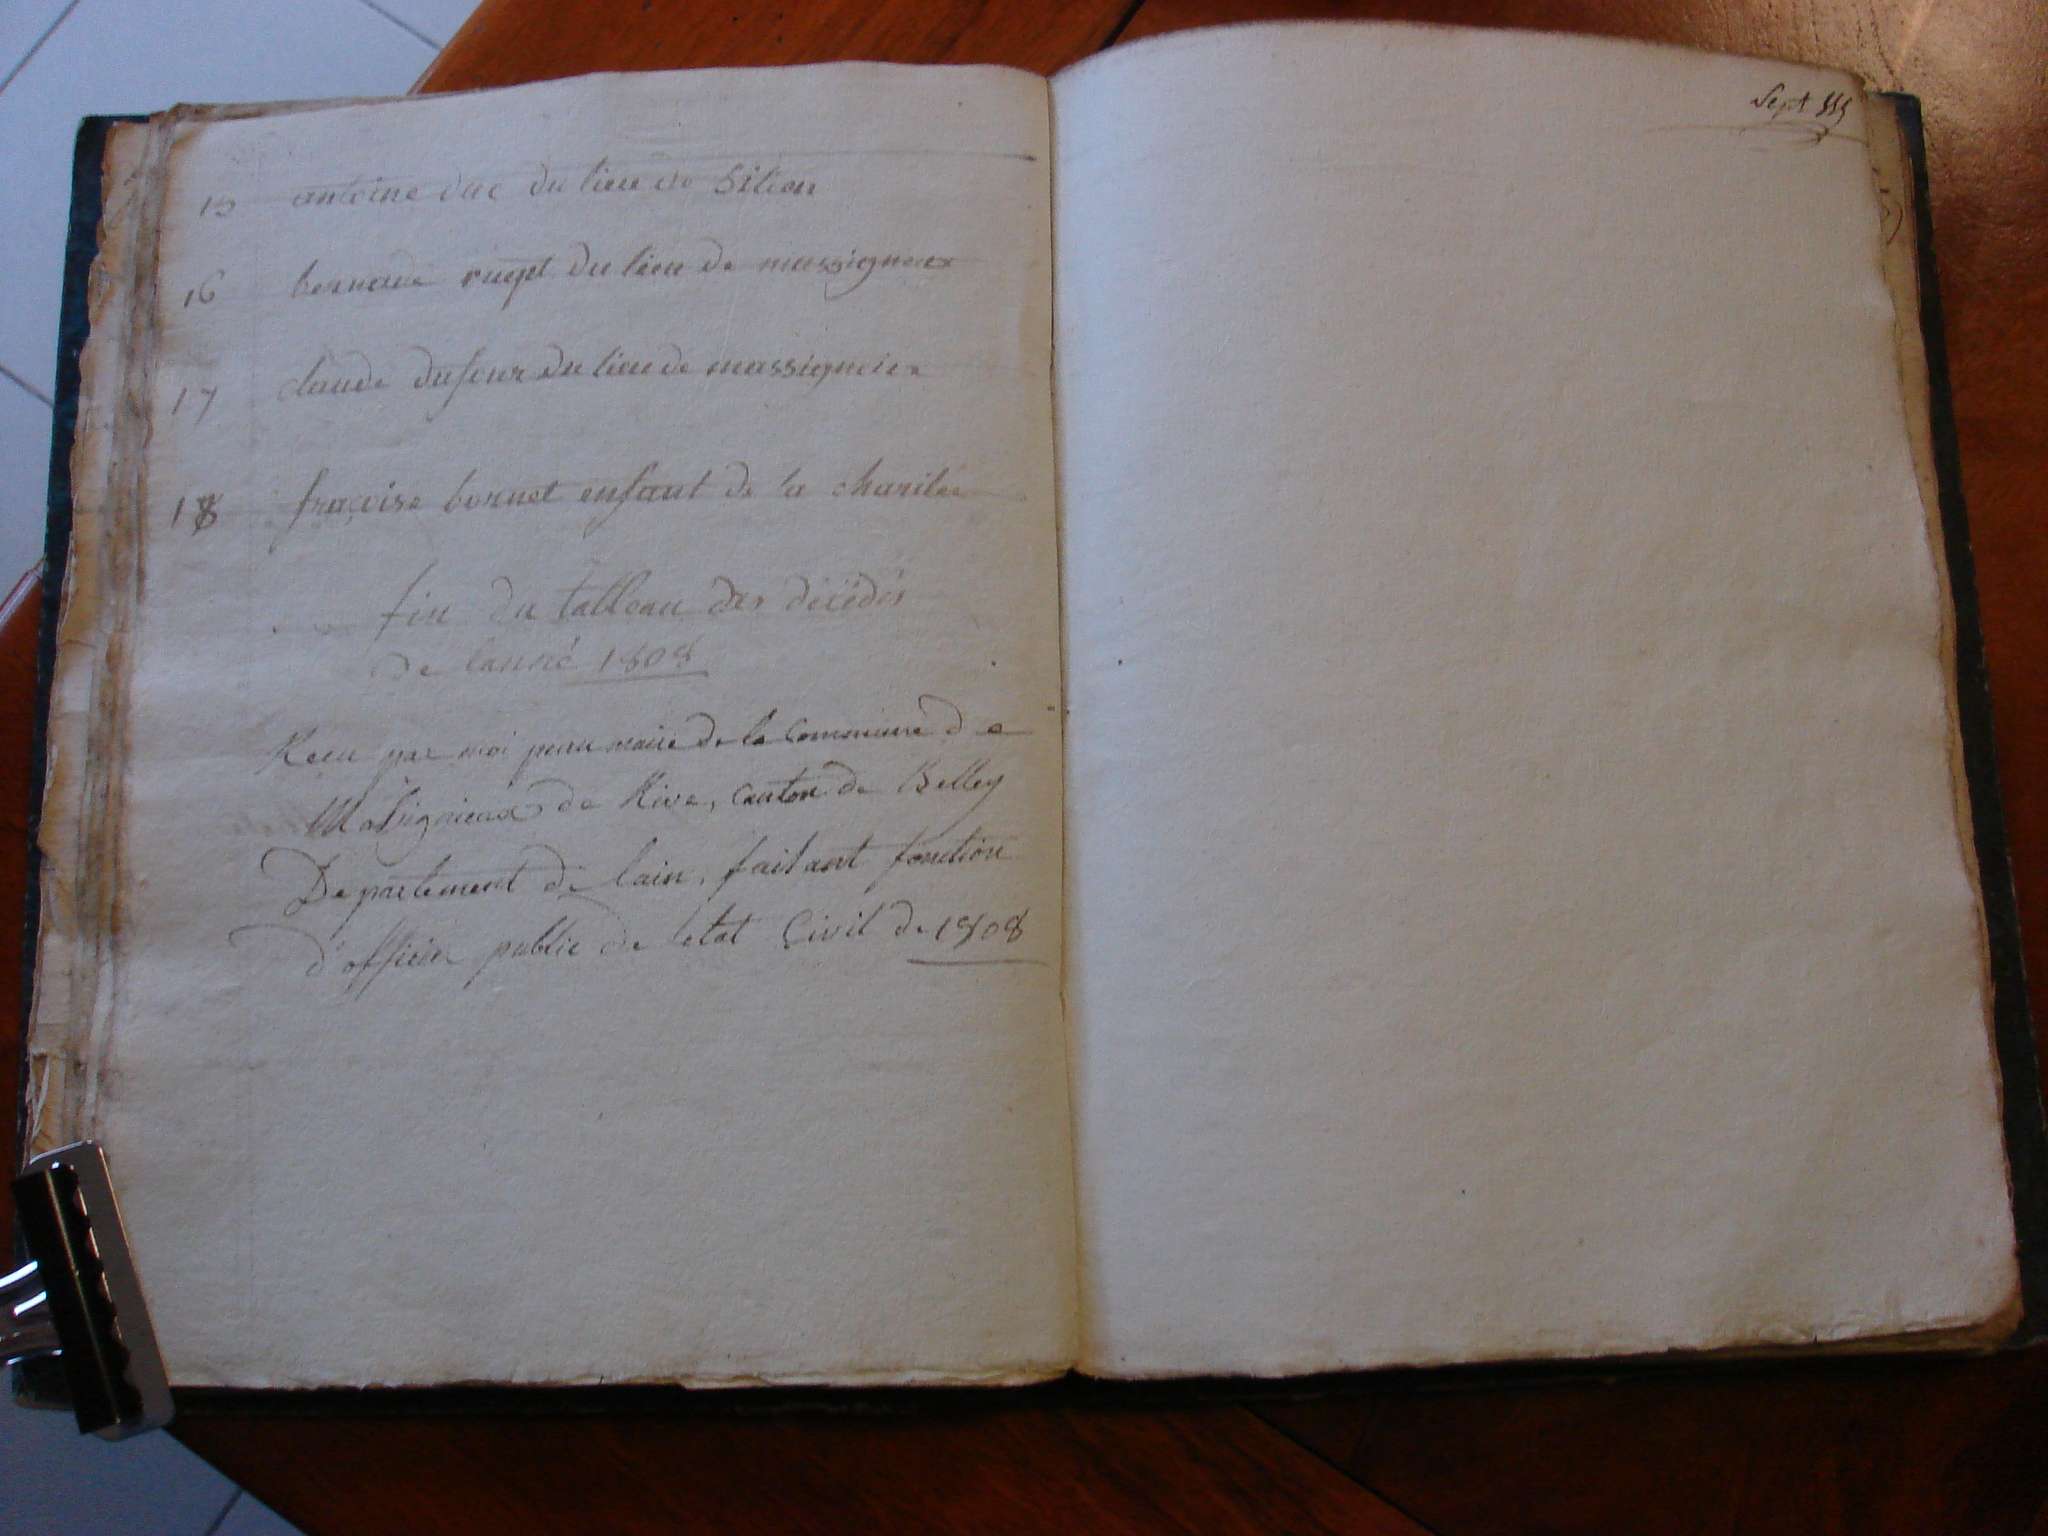 15 antoine duc du lieu de Silion
16 bernade du lieu de massigneux
17 claude dufour du lieu de massigneiu
18 fraçoise bonnet enfant de la charitee
fin du tableau des décédés
de lanné 1808
par moi maire de la Commune de
Massignieux de Rive, Canton de Belley
Departement de lain, faisant fonction
d'officier public de letat Civil de 1808
Sept